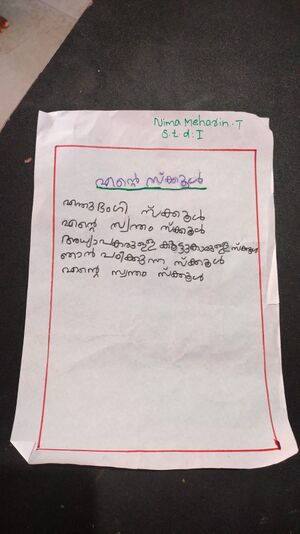 Nima Meharin.T
S.t.d:I
എന്റെ സ്ക്കൂൾ
എന്തുഭംഗി സ്ക്കൂൾ
എന്റെ സ്വന്തം സ്ക്കൂൾ
അധ്യാപകരുള്ള കൂട്ടുകാരുള്ള സ്ക്കൂൾ
ഞാൻ പഠിക്കുന്ന സ്ക്കൂൾ
എന്റെ സ്വന്തം സ്ക്കൂൾ